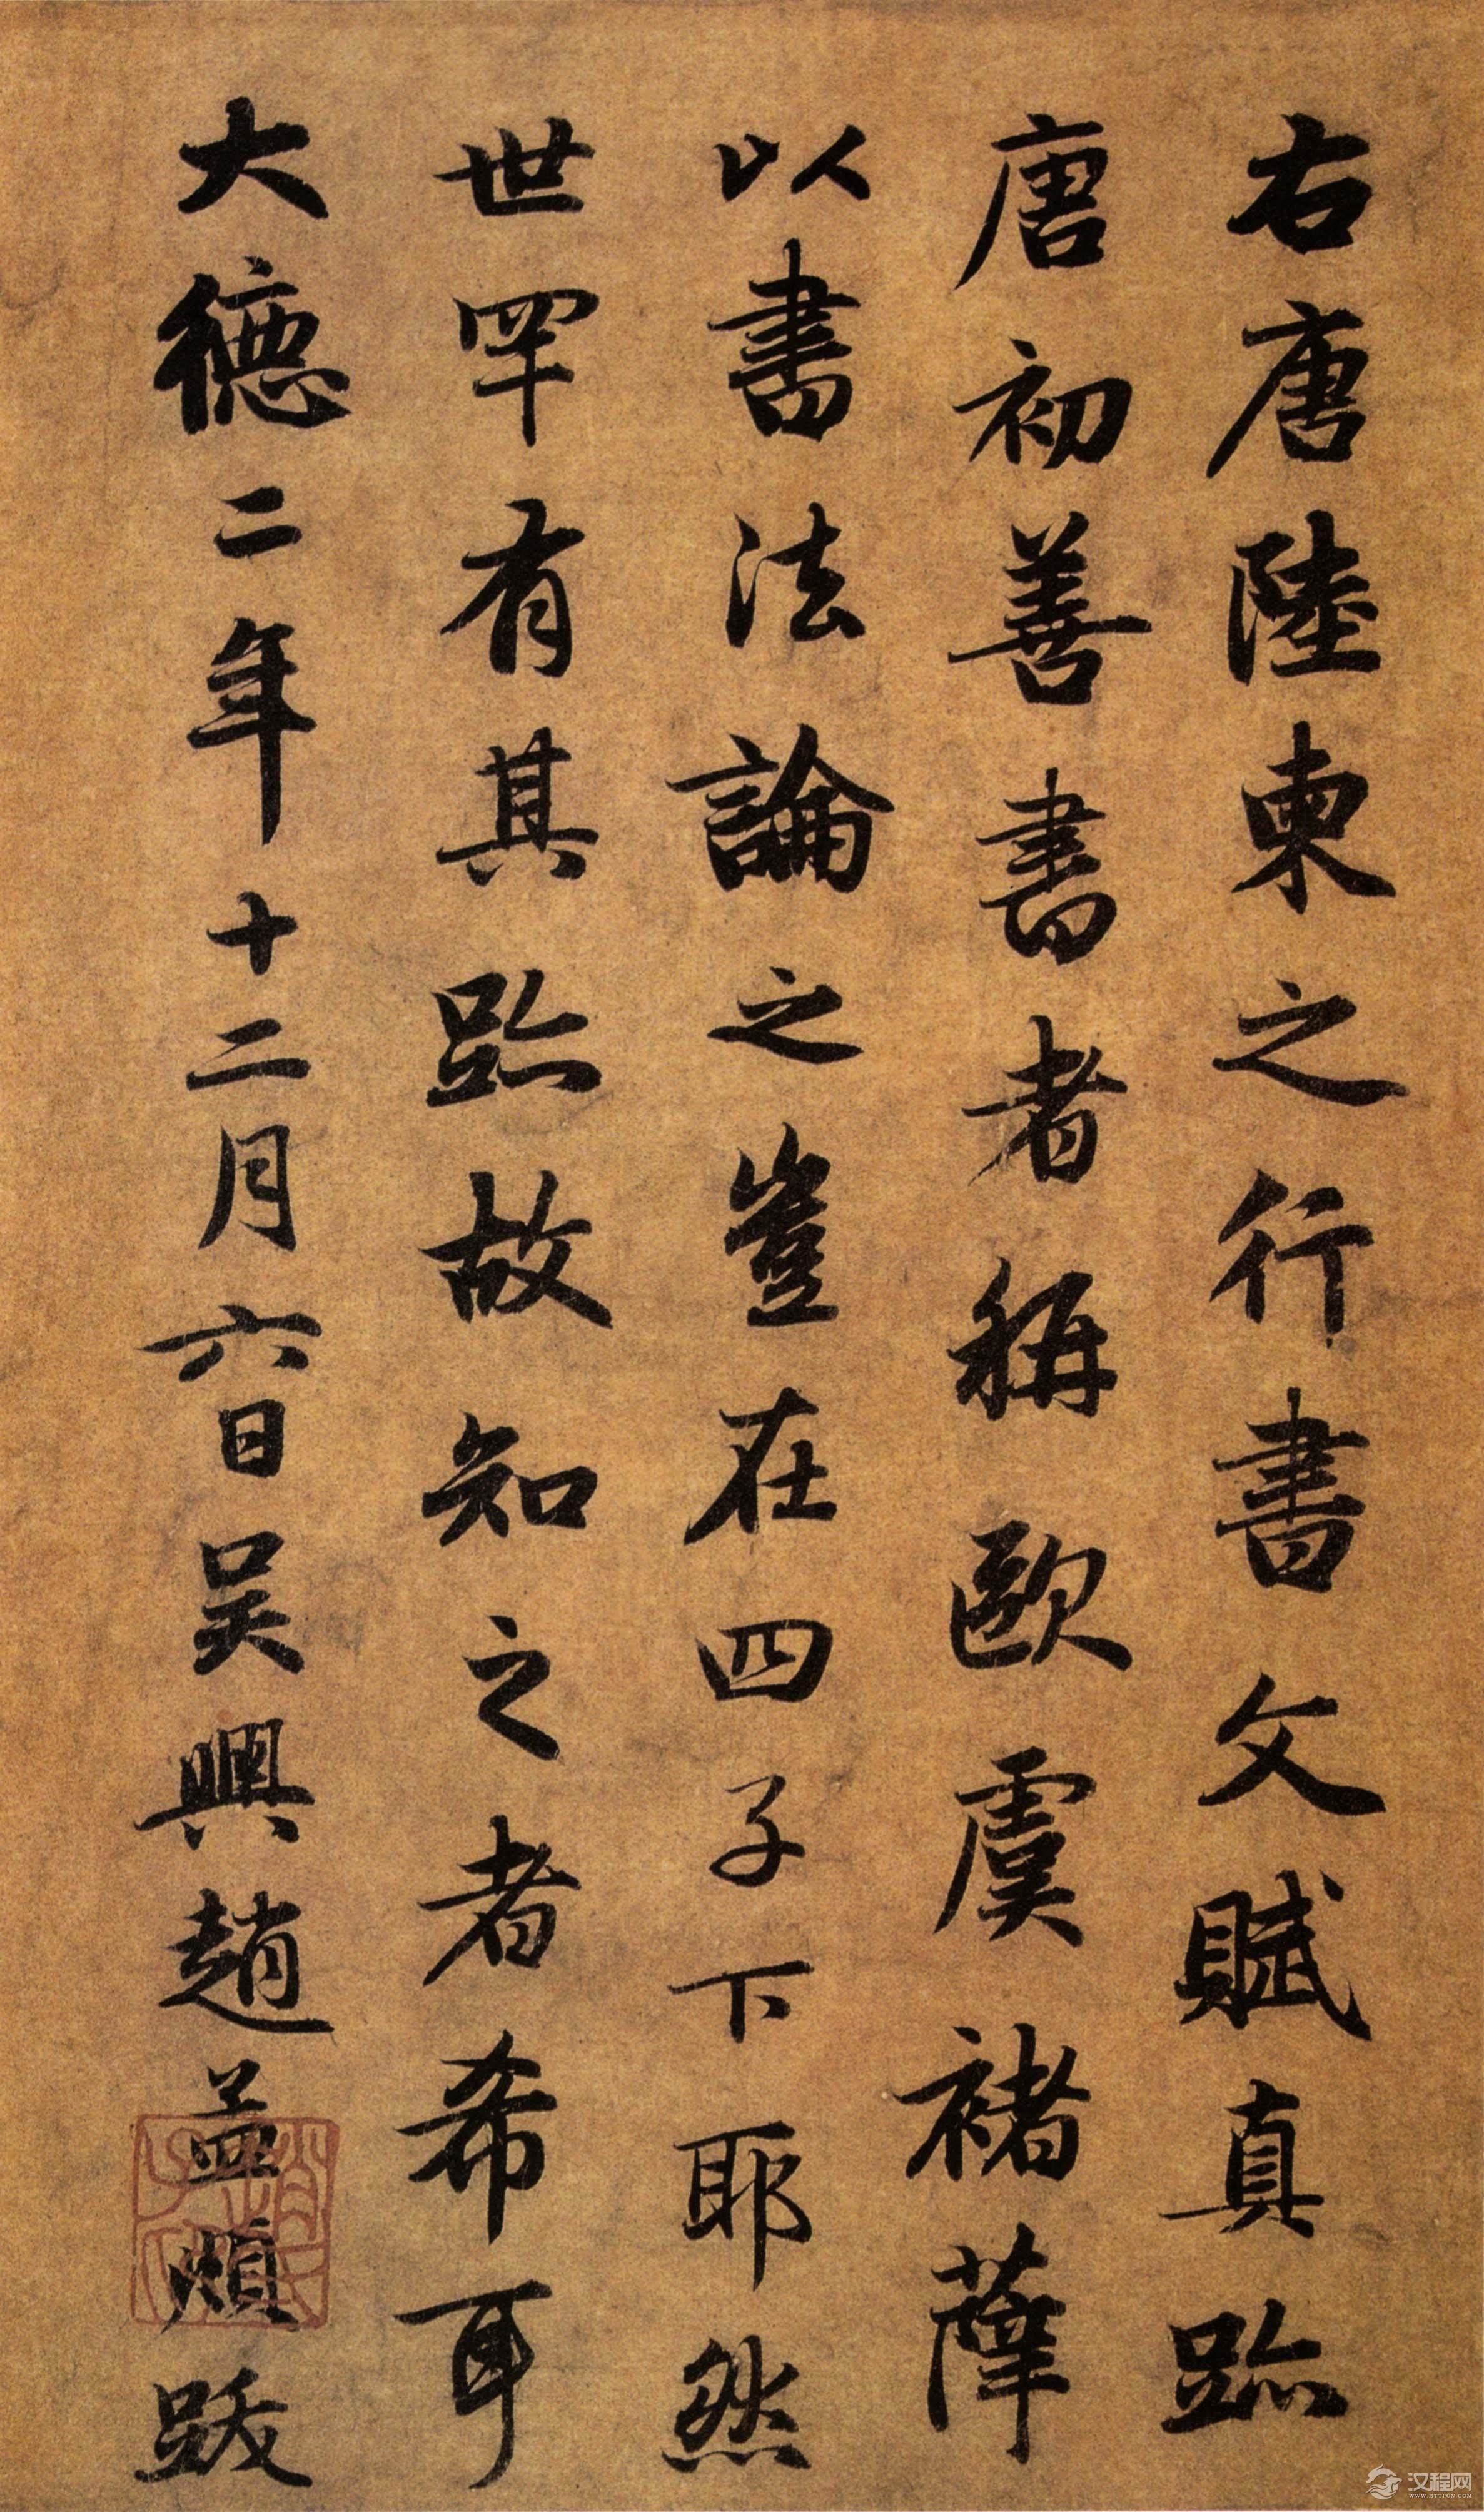 右唐陸柬之行書文賦真跡
唐初善書者稱歐虞褚薛
以書法論之豈在四子下耶然
世罕有其跡故知之者希耳
大德二年十二月六日吴興趙孟頫跋
趙氏子昂
汉程网
WWW.HTTPCN.COM